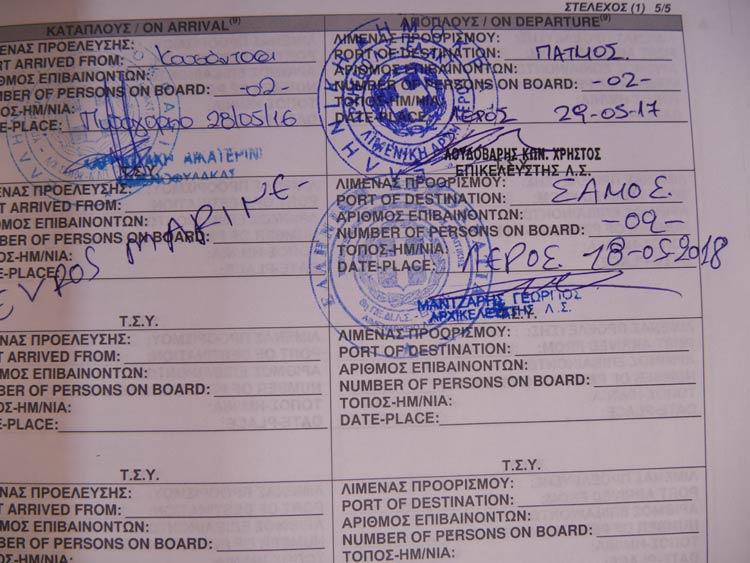 ΣΤΕΛΕΧΟΣ (1) 5/5
ΚΑΤΑΠΛΟΥΣ / ON ARRIVAL(9)
ΑΠΟΠΛΟΥΣ / ON DEPARTURE(9)
ΜΕΝΑΣ ΠΡΟΕΛΕΥΣΗΣ:
RT ARRIVED FROM:
ΡΙΘΜΟΣ ΕΠΙΒΑΙΝΟΝΤΩΝ:
MBER OF PERSONS ON BOARD: -02-
ΠΟΣ-ΗΜ/ΝΙΑ:
ATE-PLACE: 28/05/16
Τ.Σ.Υ.
ΛΙΜΕΝΑΣ ΠΡΟΟΡΙΣΜΟΥ:
PORT OF DESTINATION: ΠΑΤΜΟΣ.
ΑΡΙΘΜΟΣ ΕΠΙΒΑΙΝΟΝΤΩΝ:
NUMBER OF PERSONS ON BOARD: -02-
ΤΟΠΟΣ-ΗΜ/ΝΙΑ:
DATE-PLACE: ΛΕΡΟΣ 29-05-17
ΛΙΜΕΝΙΚΗ ΑΡΧΗ
ΚΩΝ. ΧΡΗΣΤΟΣ
ΕΠΙΚΕΛΕΥΣΤΗΣ Λ.Σ.
ΜΕΝΑΣ ΠΡΟΕΛΕΥΣΗΣ:
RT ARRIVED FROM:
ΡΙΘΜΟΣ ΕΠΙΒΑΙΝΟΝΤΩΝ:
UMBER OF PERSONS ON BOARD:
ΟΠΟΣ-ΗΜ/ΝΙΑ:
TE-PLACE:
EVROS MARINE-
Τ.Σ.Υ.
ΛΙΜΕΝΑΣ ΠΡΟΟΡΙΣΜΟΥ:
PORT OF DESTINATION: ΣΑΜΟΣ.
ΑΡΙΘΜΟΣ ΕΠΙΒΑΙΝΟΝΤΩΝ:
NUMBER OF PERSONS ON BOARD: -02-
ΤΟΠΟΣ-ΗΜ/ΝΙΑ:
DATE-PLACE: ΛΕΡΟΣ 18-05-2018
ΜΑΝΤΖΑΡΗΣ ΓΕΩΡΓΙΟΣ
ΑΡΧΙΚΕΛΕΥΣΤΗΣ Λ.Σ.
ΜΕΝΑΣ ΠΡΟΕΛΕΥΣΗΣ:
RT ARRIVED FROM:
ΡΙΘΜΟΣ ΕΠΙΒΑΙΝΟΝΤΩΝ:
UMBER OF PERSONS ON BOARD:
ΟΠΟΣ-ΗΜ/ΝΙΑ:
ATE-PLACE:
Τ.Σ.Υ.
ΛΙΜΕΝΑΣ ΠΡΟΟΡΙΣΜΟΥ:
PORT OF DESTINATION:
ΑΡΙΘΜΟΣ ΕΠΙΒΑΙΝΟΝΤΩΝ:
NUMBER OF PERSONS ON BOARD:
ΤΟΠΟΣ-ΗΜ/ΝΙΑ:
DATE-PLACE:
Τ.Σ.Υ.
ΜΕΝΑΣ ΠΡΟΕΛΕΥΣΗΣ:
RT ARRIVED FROM:
ΡΙΘΜΟΣ ΕΠΙΒΑΙΝΟΝΤΩΝ:
UMBER OF PERSONS ON BOARD:
ΛΙΜΕΝΑΣ ΠΡΟΟΡΙΣΜΟΥ:
PORT OF DESTINATION:
ΑΡΙΘΜΟΣ ΕΠΙΒΑΙΝΟΝΤΩΝ:
NUMBER OF PERSONS ON BOARD:
ΤΟΠΟΣ-ΗΜ/ΝΙΑ: